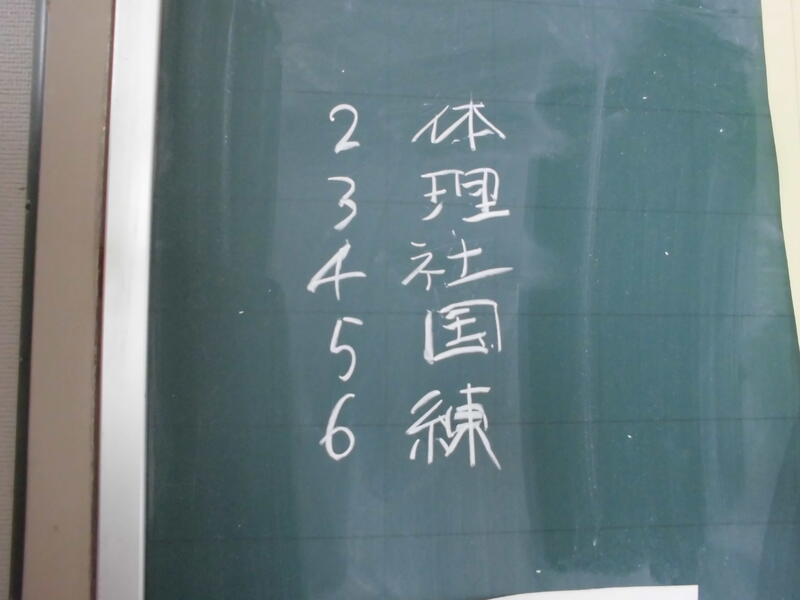 2 体
3 理
4 社
5 国
6 練